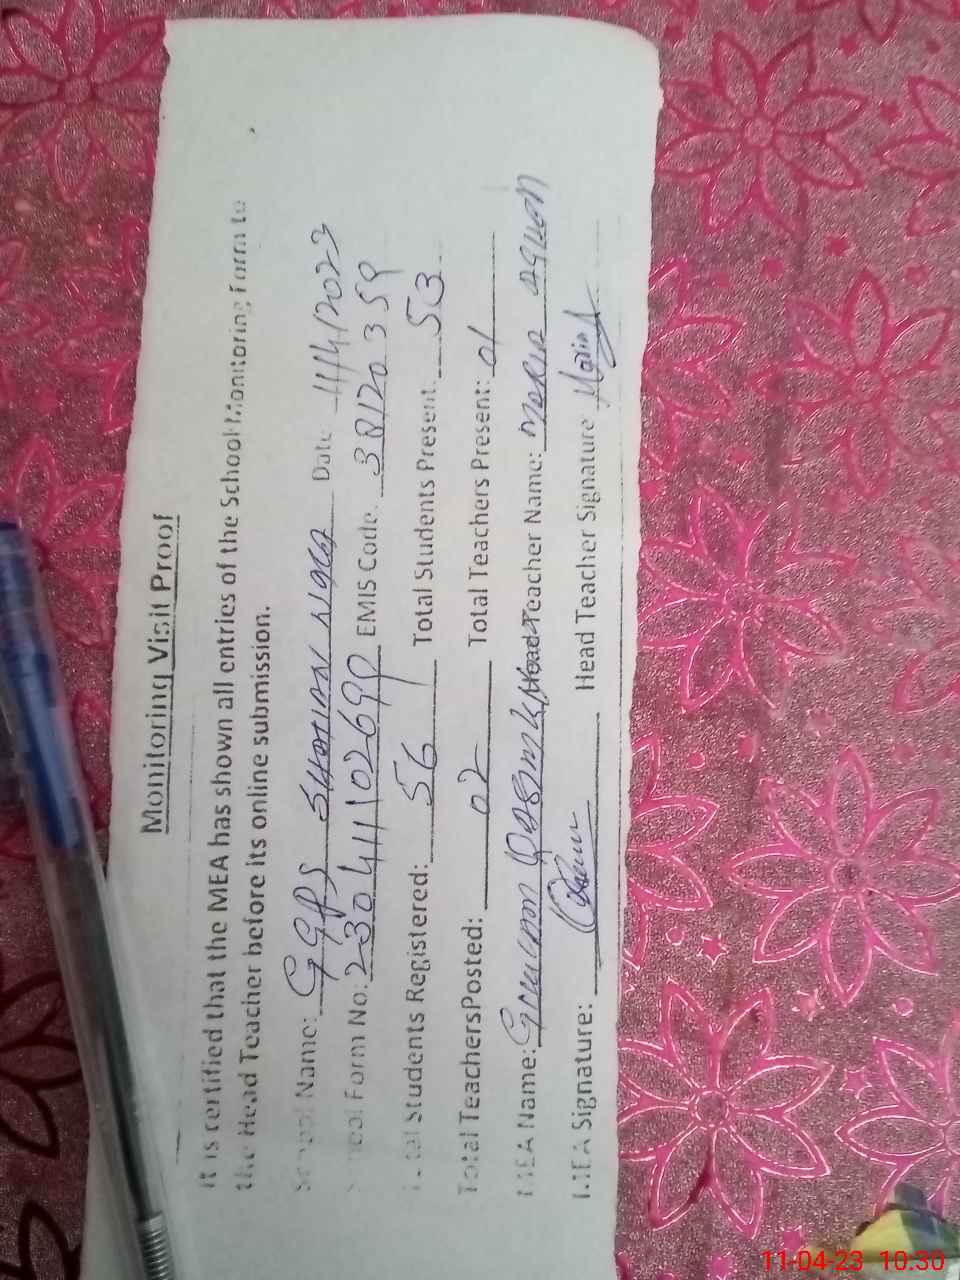 Monitoring Visit Proof
It is certified that the MEA has shown all entries of the School Monitoring Form to
the Head Teacher before its online submission.
School Name: GGPS Date 11/4/2023
School Form No: EMIS Code. 38120359
Total Students Registered: 56 Total Students Present: 53
Total TeachersPosted: 02 Total Teachers Present: 01
MEA Name: Head Teacher Name: Maria
MEA Signature: Head Teacher Signature Maria
11-04-23 10:30